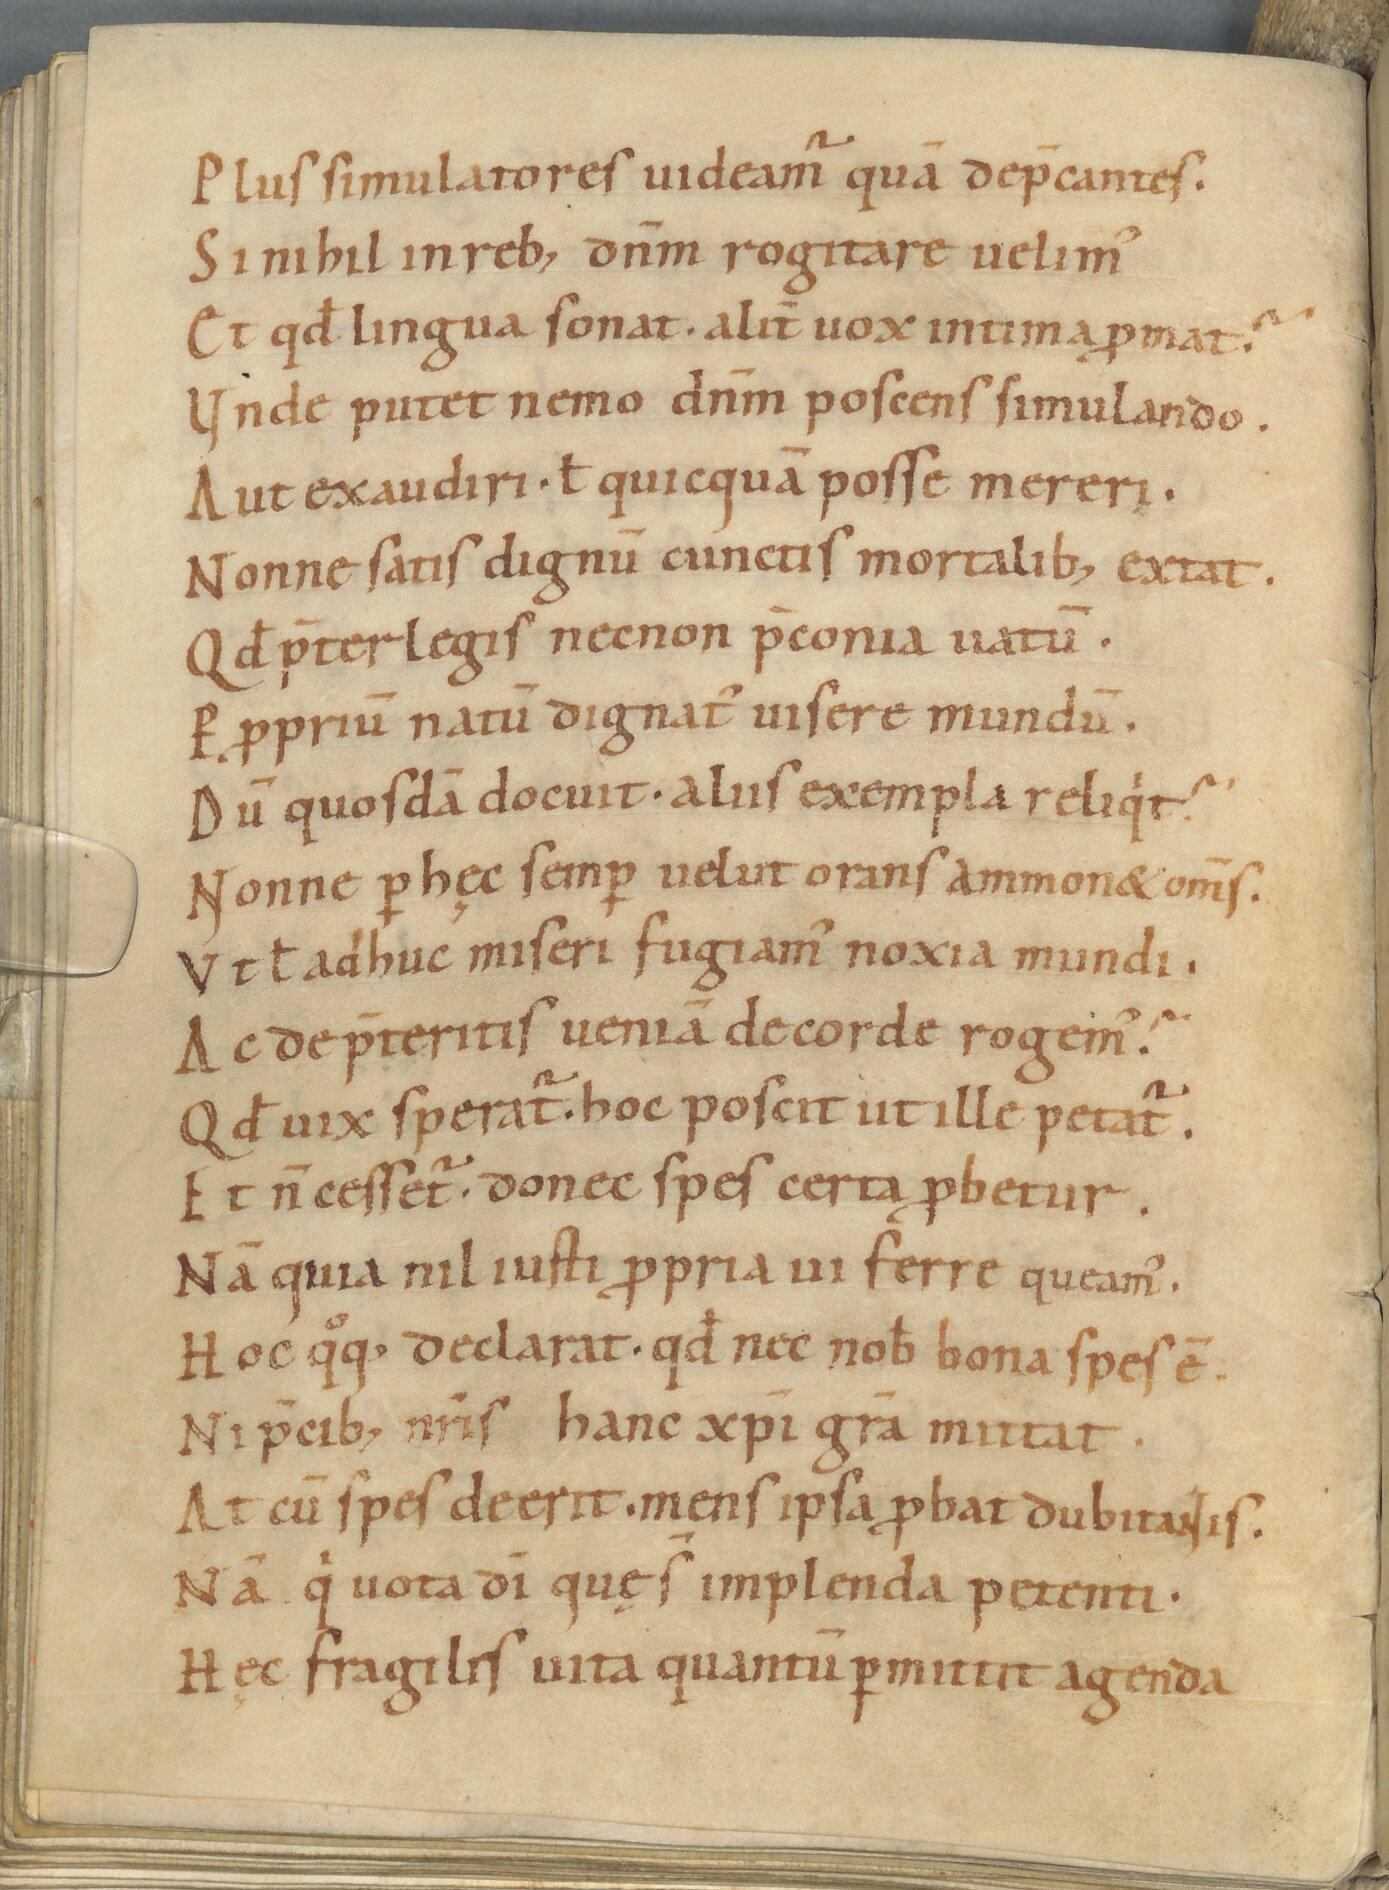 Plus simulatores uideam᷑ quā dep̄cantes.
Si nihil in reb; dn̄m rogitare uelim᾽
Et qđ lingua sonat. alit̄ uox intima ꝓmat?
Vnde putet nemo dn̄m poscens simulando.
Aut exaudiri. ł quicquā posse mereri.
Nonne satis dignū cunctis mortalib; extat.
Qđ p̄ter legis necnon p̄conia uatū.
P ꝓpriū natū dignat᾽ uisere mundū.
Dū quosdā docuit. aliis exempla reliqͥt?
Nonne ꝑ hęc semꝑ uelut orans ammon& om̄s.
Vt ł adhuc miseri fugiam᾽ noxia mundi.
Ac de p̄teritis ueniā de corde rogem᾽?
Qđ uix sperat᷑. hoc poscit ut ille petat᷑.
Et n̄ cesset᷑. donec spes certa ꝓbetur.
Nā quia nil iusti ꝓpria ui ferre queam᾽.
Hoc qͦq; declarat. qđ nec nob̄ bona spes ē.
Ni p̄cib; nr̄is hanc xp̄i gr̄a mittat.
At cū spes deerit. mens ipsa ꝓbat
Nā qͥ uota dī quę s̄ implenda petenti.
Hęc fragilis uita quantū ꝑmittit agenda